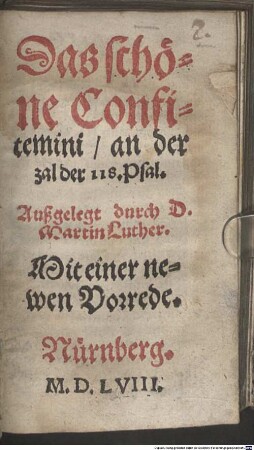 2.
Das schö-
ne Confi-
temini / an der
zal der 118. Psal.
Außgelegt durch D.
Martin Luther.
Mit einer ne-
wen Vorrede.
Nürnberg.
M. D. LVIII.